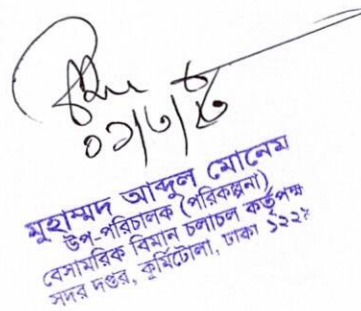 মুহাম্মদ আব্দুল মোনেম
উপ-পরিচালক (পরিকল্পনা)
বেসামরিক বিমান চলাচল কর্তৃপক্ষ
সদর দপ্তর, কুর্মিটোলা, ঢাকা ১২২৯